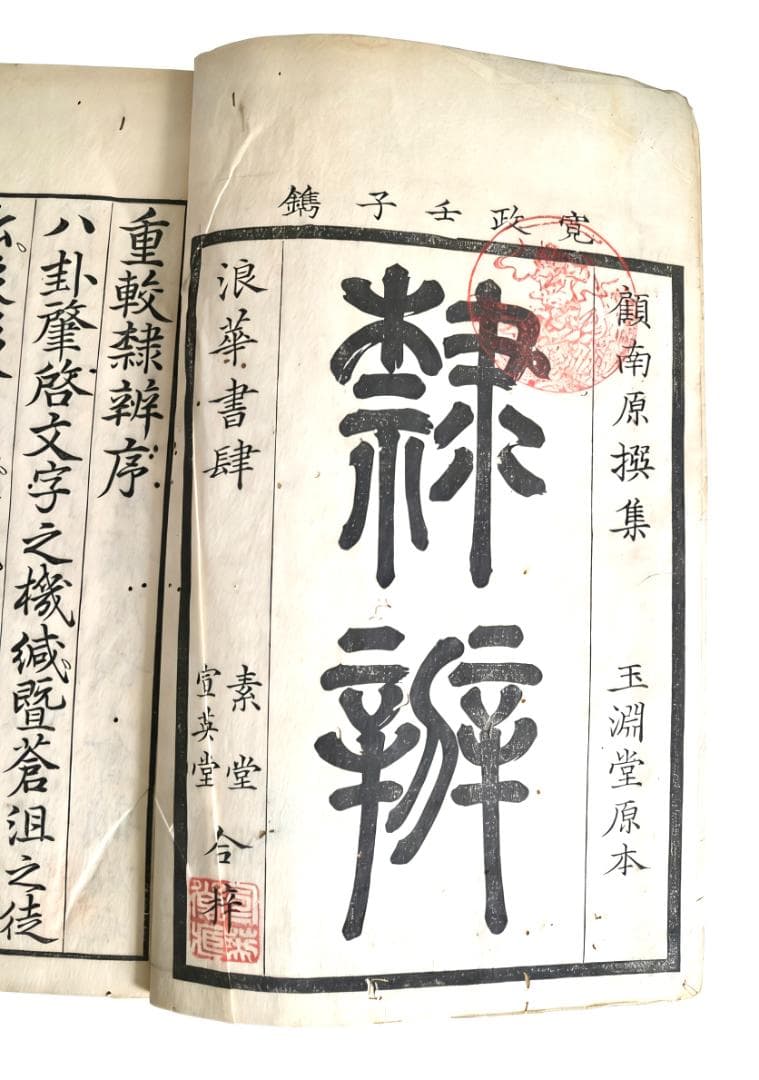 寛政壬子鐫
顧南原撰集 玉淵堂原本
隸辨
浪華書肆 素堂 宣英堂 合梓
重較隸辨序
八卦肇啓文字之機緘暨蒼沮之徒